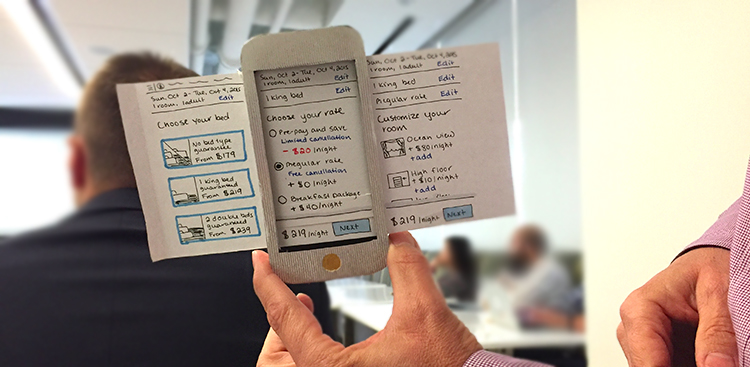 Sun, Oct 2 - Tue, Oct 4, 2015
1 room, 1 adult Edit
Choose your bed
No bed type
guarantee
From $179
1 king bed
guaranteed
From $219
2 double beds
guaranteed
From $239
Sun, Oct 2 - Tue, Oct 4, 2015
1 room, 1 adult Edit
1 king bed Edit
Choose your rate
Pre-pay and save
Limited cancellation
- $20/night
Regular rate
Free cancellation
+ $0/night
Breakfast package
+ $40/night
$219/night Next
Sun, Oct 2 - Tue, Oct 4, 2015
1 room, 1 adult Edit
1 king bed Edit
Regular rate Edit
Customize your
room
Ocean view
+ $80/night
+ add
High floor
+ $10/night
+ add
$219/night Next